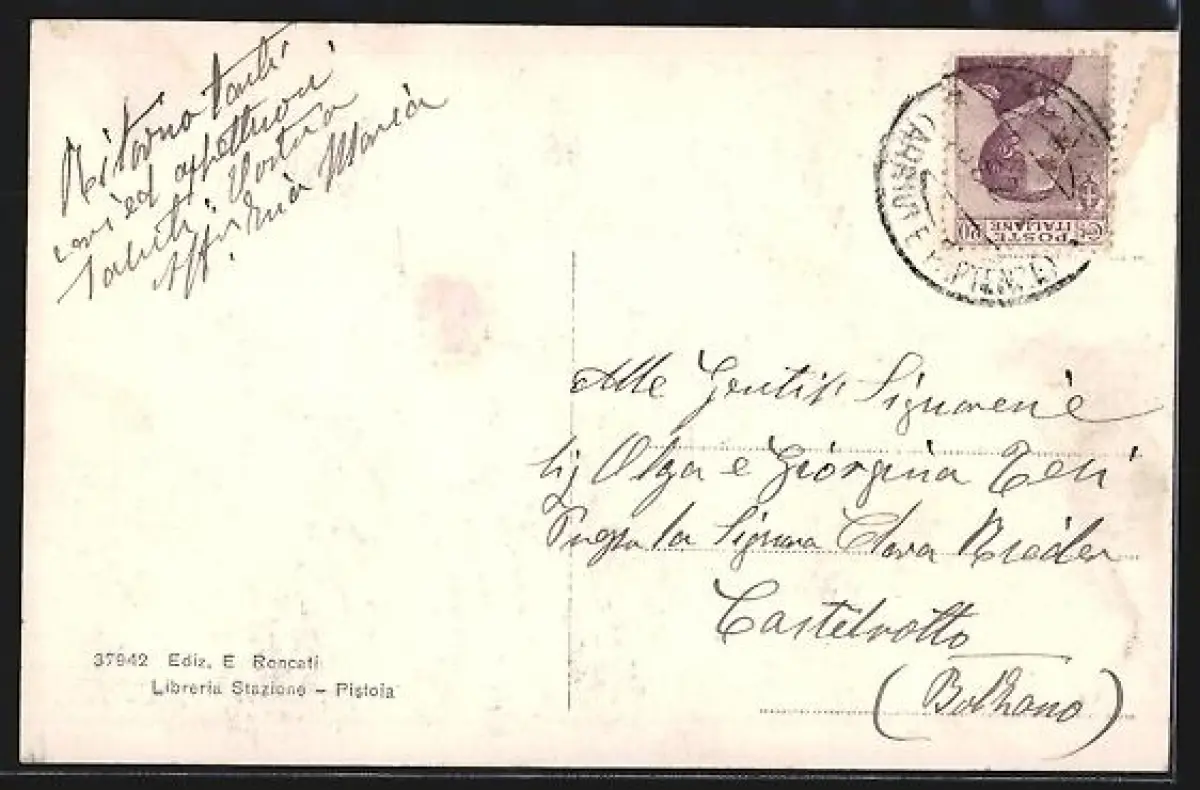 Ritorno tanti
cari ed affettuosi
saluti. Vostra
Aff. Zia Maria
POSTE
ITALIANE
(ARRIVI E PARTENZE)
Alle Gentili Signorine
Sig Olga e Giorgina Teti
Presso la Signora Clara Rieder
Castelrotto
(Bolzano)
37942 Ediz. E Roncati
Libreria Stazione - Pistoia